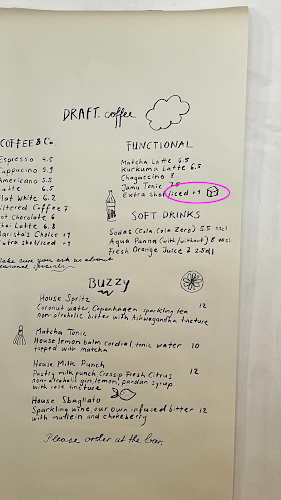 DRAFT. coffee
COFFEE & Co.
Espresso 4.5
Cappuccino 5.9
Americano 5.5
Latte 6.5
Flat White 6.2
Filtered Coffee 7
Hot Chocolate 6
Chai Latte 6.8
Barista's Choice +1
Extra shot/iced +1
Make sure you ask us about
seasonal specials
FUNCTIONAL
Matcha Latte 6.5
Kurkuma Latte 6.5
Chagaccino 8
Jamu Tonic 7.5
Extra shot/iced +1
SOFT DRINKS
Sodas (Cola, Cola Zero) 5.5 33cl
Aqua Panna (with/without) 8
Fresh Orange Juice 7 25cl
BUZZY
House Spritz 12
Coconut water, Copenhagen sparkling tea
non-alcoholic bitter with Ashwagandha tincture
Matcha Tonic
House lemon balm cordial, tonic water 10
topped with matcha
House Milk Punch
Pastry milk punch Crossip Fresh Citrus 12
non-alcoholic gin, lemon, pandan syrup
with rose tincture
House Sbagliato
Sparkling wine, our own infused bitter 12
with mullein and chokeberry
Please order at the bar.